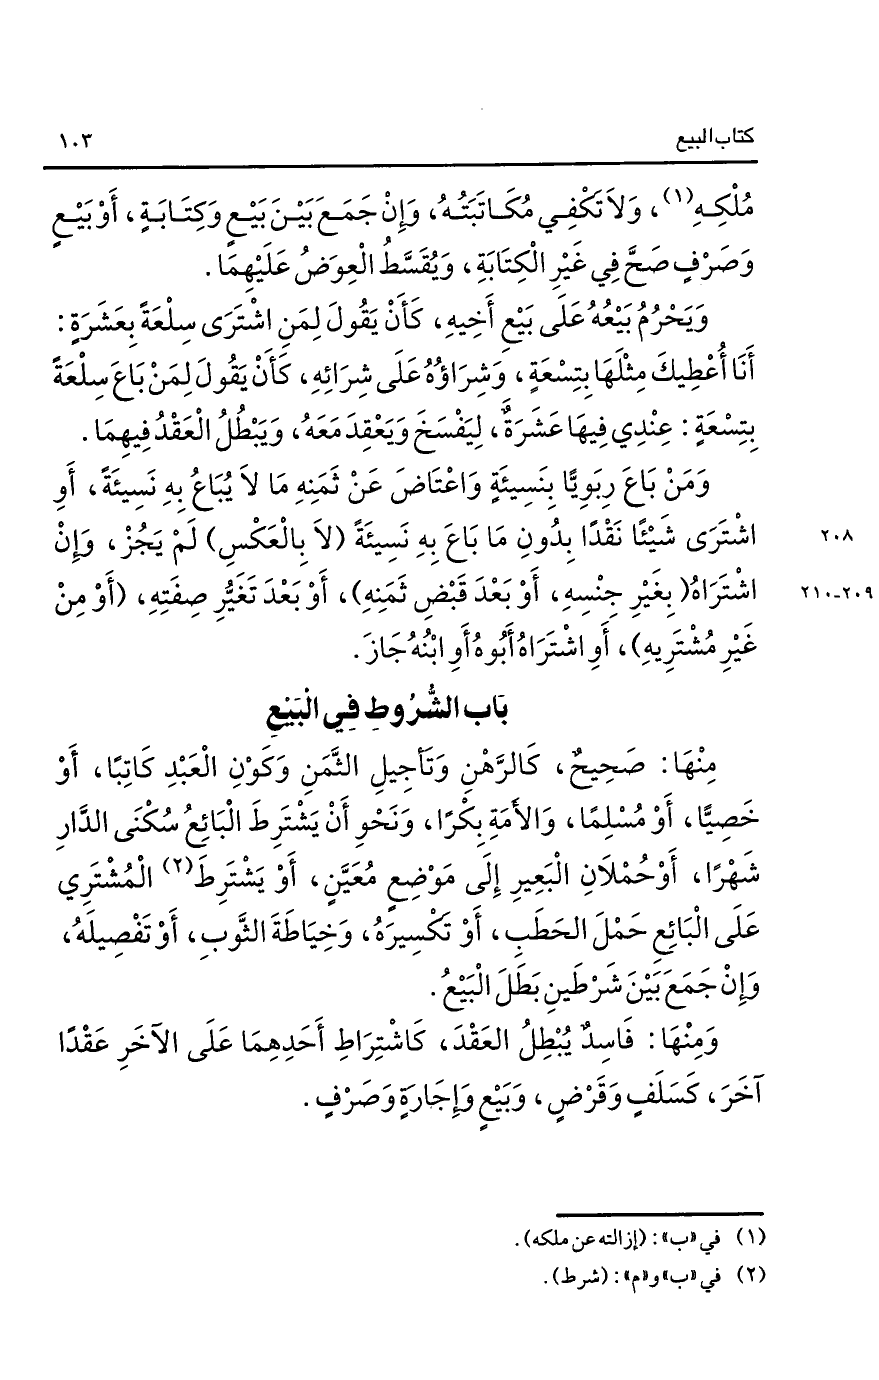 كتاب البيع ١٠٣
مُلْكِهِ(١)، وَلاَ تَكْفِي مُكَاتَبَتُهُ، وَإِنْ جَمَعَ بَيْنَ بَيْعٍ وَكِتَابَةٍ، أَوْ بَيْعٍ
وَصَرْفٍ صَحَّ فِي غَيْرِ الْكِتَابَةِ، وَيُقَسَّطُ الْعِوَضُ عَلَيْهِمَا.
وَيَحْرُمُ بَيْعُهُ عَلَى بَيْعِ أَخِيهِ، كَأَنْ يَقُولَ لِمَنِ اشْتَرَى سِلْعَةً بِعَشَرَةٍ:
أَنَا أُعْطِيكَ مِثْلَهَا بِتِسْعَةٍ، وَشِرَاؤُهُ عَلَى شِرَائِهِ، كَأَنْ يَقُولَ لِمَنْ بَاعَ سِلْعَةً
بِتِسْعَةٍ: عِنْدِي فِيهَا عَشَرَةٌ، لِيَفْسَخَ وَيَعْقِدَ مَعَهُ، وَيَبْطُلُ الْعَقْدُ فِيهِمَا.
وَمَنْ بَاعَ رِبَوِيًّا بِنَسِيئَةٍ وَاعْتَاضَ عَنْ ثَمَنِهِ مَا لاَ يُبَاعُ بِهِ نَسِيئَةً، أَوِ
اشْتَرَى شَيْئًا نَقْدًا بِدُونِ مَا بَاعَ بِهِ نَسِيئَةً (لاَ بِالْعَكْسِ) لَمْ يَجُزْ، وَإِنْ ٢٠٨
اشْتَرَاهُ (بِغَيْرِ جِنْسِهِ، أَوْ بَعْدَ قَبْضِ ثَمَنِهِ)، أَوْ بَعْدَ تَغَيُّرِ صِفَتِهِ، (أَوْ مِنْ ٢٠٩-٢١٠
غَيْرِ مُشْتَرِيهِ)، أَوِ اشْتَرَاهُ أَبُوهُ أَوِ ابْنُهُ جَازَ.
بَاب الشُّرُوطِ فِي الْبَيْعِ
مِنْهَا: صَحِيحٌ، كَالرَّهْنِ وَتَأْجِيلِ الثَّمَنِ وَكَوْنِ الْعَبْدِ كَاتِبًا، أَوْ
خَصِيًّا، أَوْ مُسْلِمًا، وَالأَمَةِ بِكْرًا، وَنَحْوِ أَنْ يَشْتَرِطَ الْبَائِعُ سُكْنَى الدَّارِ
شَهْرًا، أَوْ حُمْلَانِ الْبَعِيرِ إِلَى مَوْضِعٍ مُعَيَّنٍ، أَوْ يَشْتَرِطَ(٢) الْمُشْتَرِي
عَلَى الْبَائِعِ حَمْلَ الحَطَبِ، أَوْ تَكْسِيرَهُ، وَخِيَاطَةَ الثَّوبِ، أَوْ تَفْصِيلَهُ،
وَإِنْ جَمَعَ بَيْنَ شَرْطَينِ بَطَلَ الْبَيْعُ.
وَمِنْهَا: فَاسِدٌ يُبْطِلُ العَقْدَ، كَاشْتِرَاطِ أَحَدِهِمَا عَلَى الآخَرِ عَقْدًا
آخَرَ، كَسَلَفٍ وَقَرْضٍ، وَبَيْعٍ وَإِجَارَةٍ وَصَرْفٍ.
(١) في «ب»: (إزالته عن ملكه).
(٢) في «ب» و«م»: (شرط).